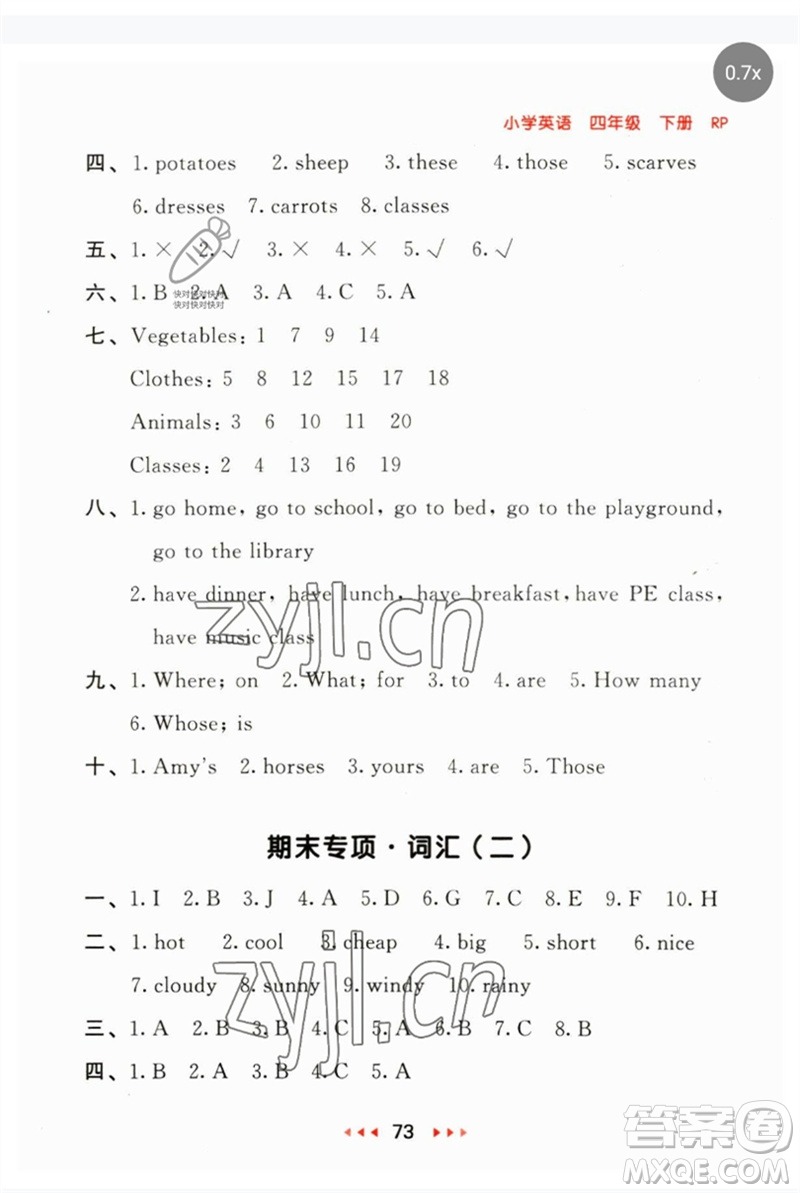 0.7x
小学英语 四年级 下册 RP
四、1. potatoes 2. sheep 3. these 4. those 5. scarves
6. dresses 7. carrots 8. classes
五、1. × 2. √ 3. × 4. × 5. √ 6. √
六、1. B 2. A 3. A 4. C 5. A
快对快对快对
快对快对快对
七、Vegetables: 1 7 9 14
Clothes: 5 8 12 15 17 18
Animals: 3 6 10 11 20
Classes: 2 4 13 16 19
八、1. go home, go to school, go to bed, go to the playground,
go to the library
2. have dinner, have lunch, have breakfast, have PE class,
have music class
zyjl.cn
九、1. Where; on 2. What; for 3. to 4. are 5. How many
6. Whose; is
十、1. Amy's 2. horses 3. yours 4. are 5. Those
期末专项·词汇(二)
一、1. I 2. B 3. J 4. A 5. D 6. G 7. C 8. E 9. F 10. H
二、1. hot 2. cool 3. cheap 4. big 5. short 6. nice
7. cloudy 8. sunny 9. windy 10. rainy
zyjl.cn
三、1. A 2. B 3. B 4. C 5. A 6. B 7. C 8. B
四、1. B 2. A 3. B 4. C 5. A
73
答案圈
MXQE.COM